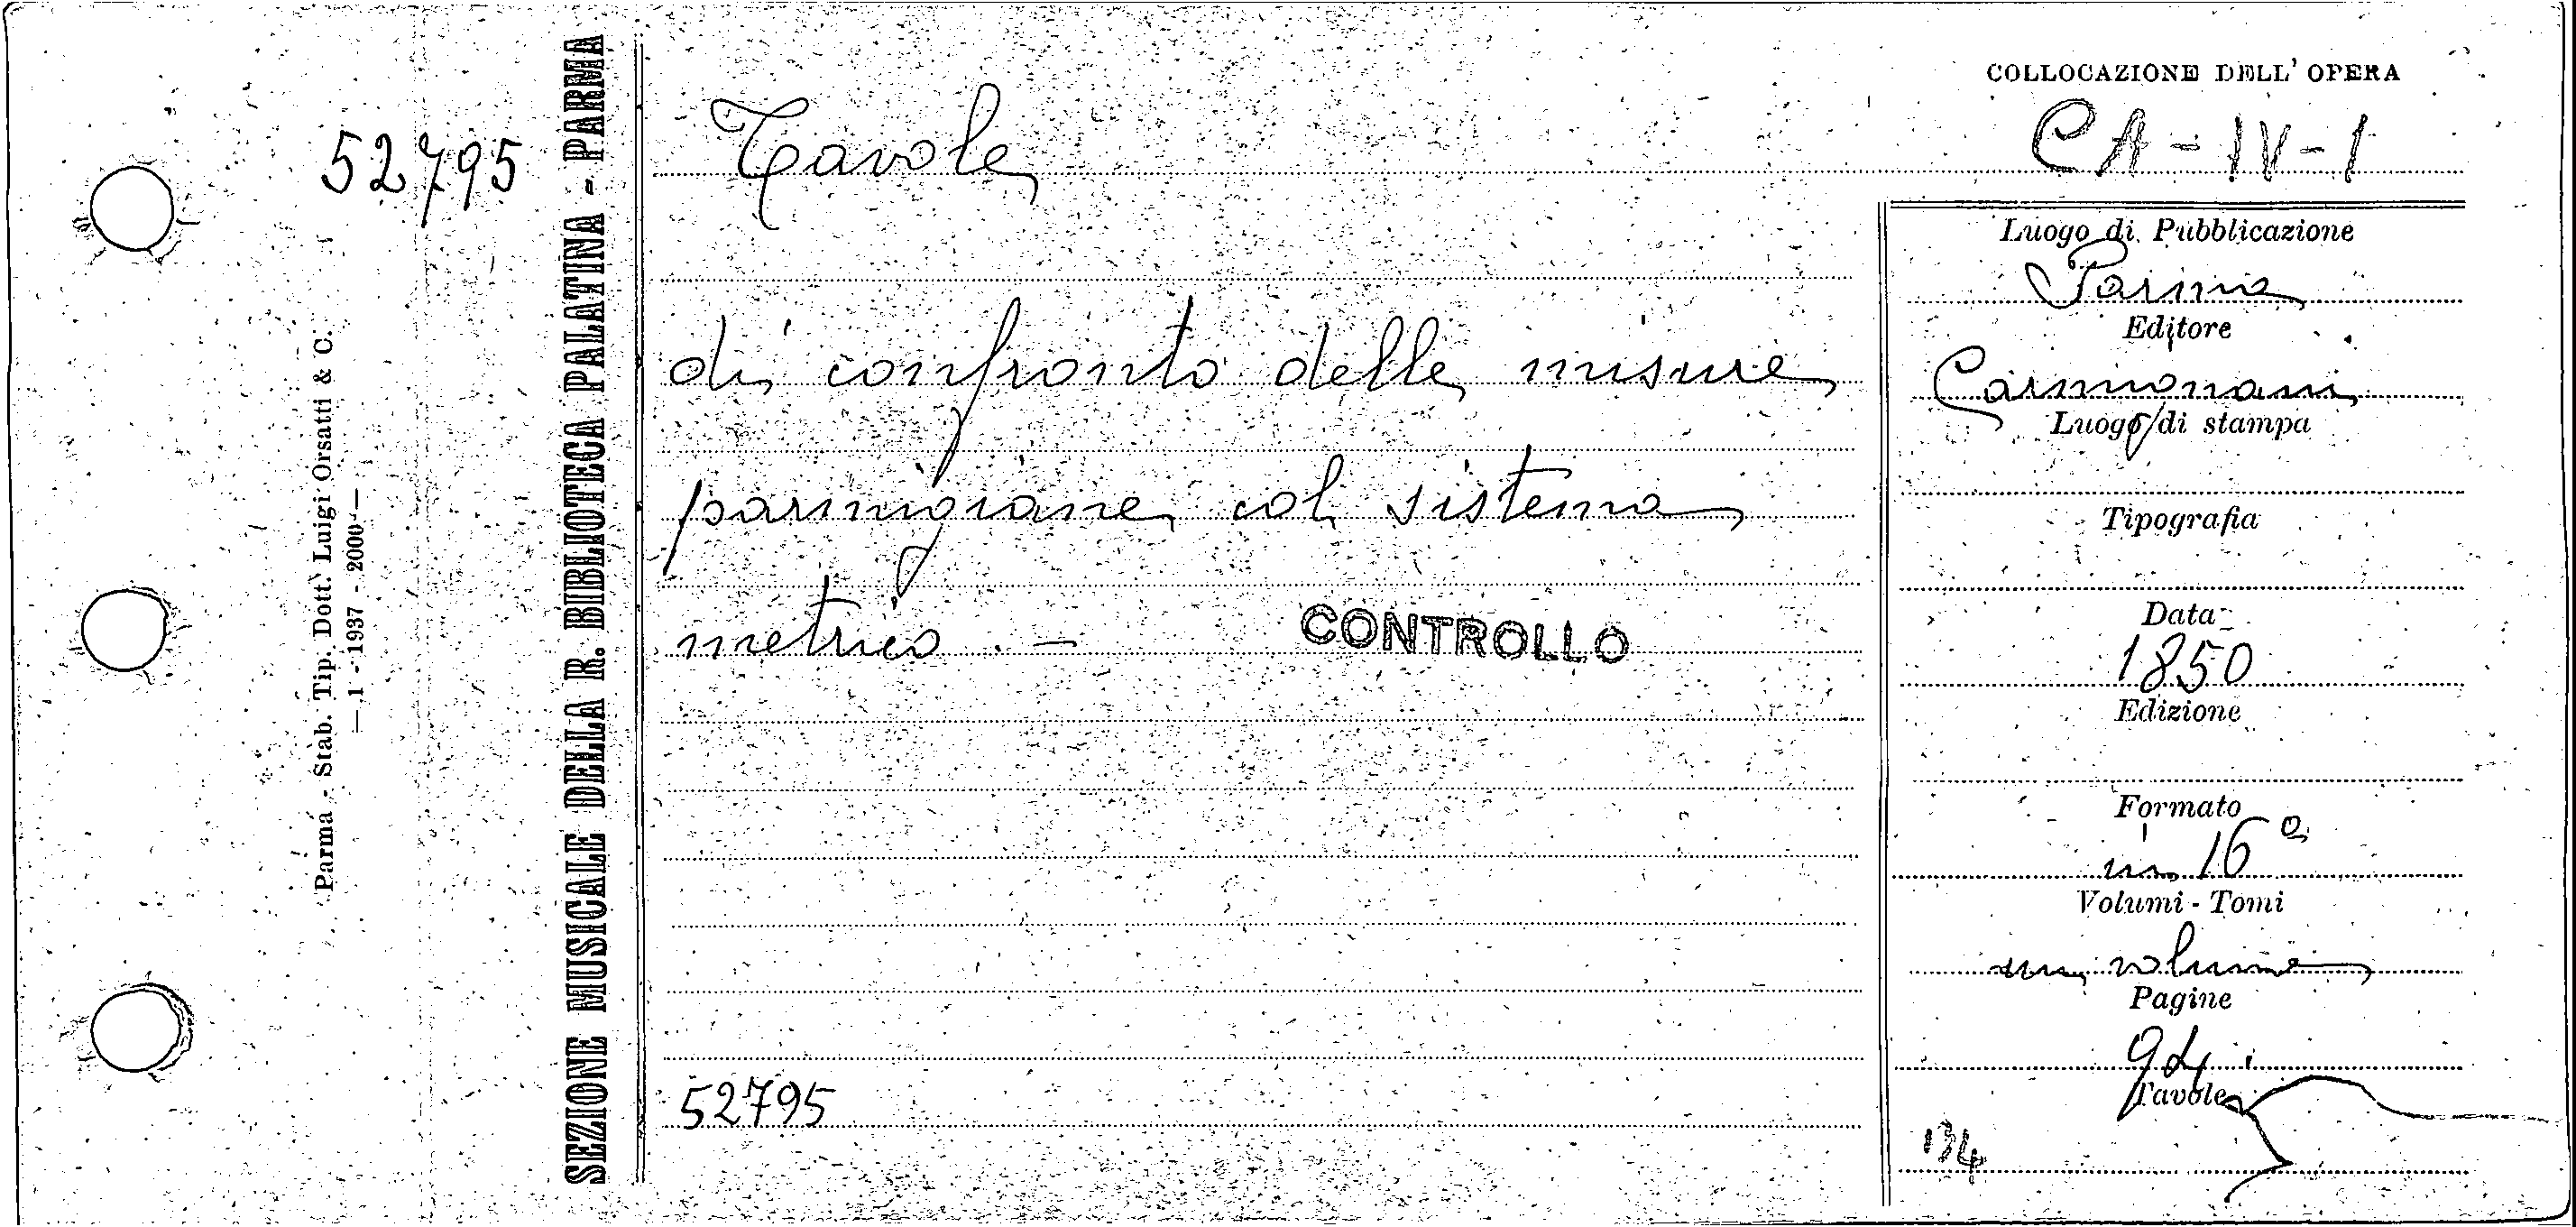 52795
Parma - Stab. Tip. Dott. Luigi Orsatti & C.
— 1 - 1937 - 2000 —
SEZIONE MUSICALE DELLA R. BIBLIOTECA PALATINA - PARMA
Tavole
di confronto delle misure
parmigiane col sistema
metrico. —
CONTROLLO
52795
COLLOCAZIONE DELL' OPERA
CA - IV - 1
Luogo di Pubblicazione
Parma
Editore
Carmignani
Luogo di stampa
Tipografia
Data
1850
Edizione
Formato
in 16°
Volumi - Tomi
un volume
Pagine
94
Tavole
134